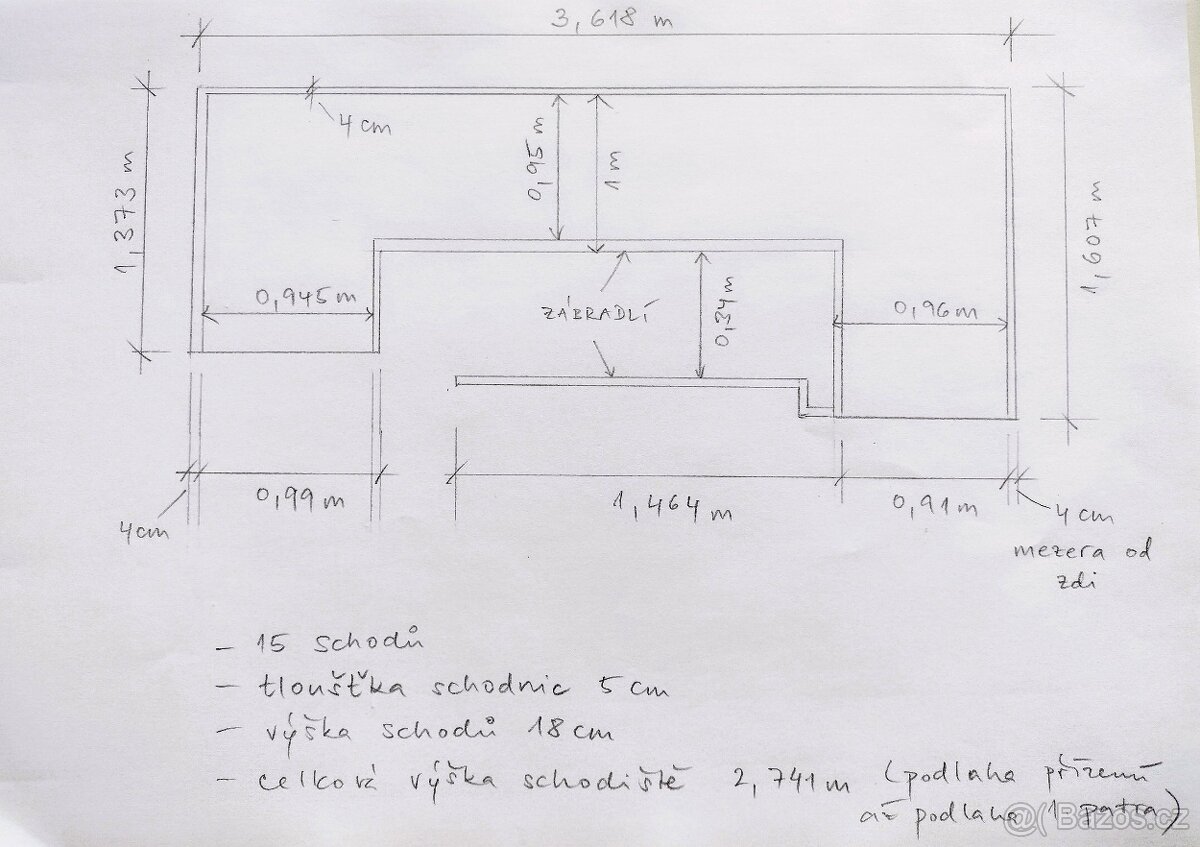 3,618 m
4 cm
0,95 m
1 m
1,373 m
1,607 m
0,945 m
ZÁBRADLÍ
0,34 m
0,96 m
0,99 m
1,464 m
0,91 m
4 cm
4 cm
mezera od
zdi
- 15 schodů
- tloušťka schodnic 5 cm
- výška schodů 18 cm
- celková výška schodiště 2,741 m (podlaha přízemí
až podlaha 1 patra)
@( Bazos.cz